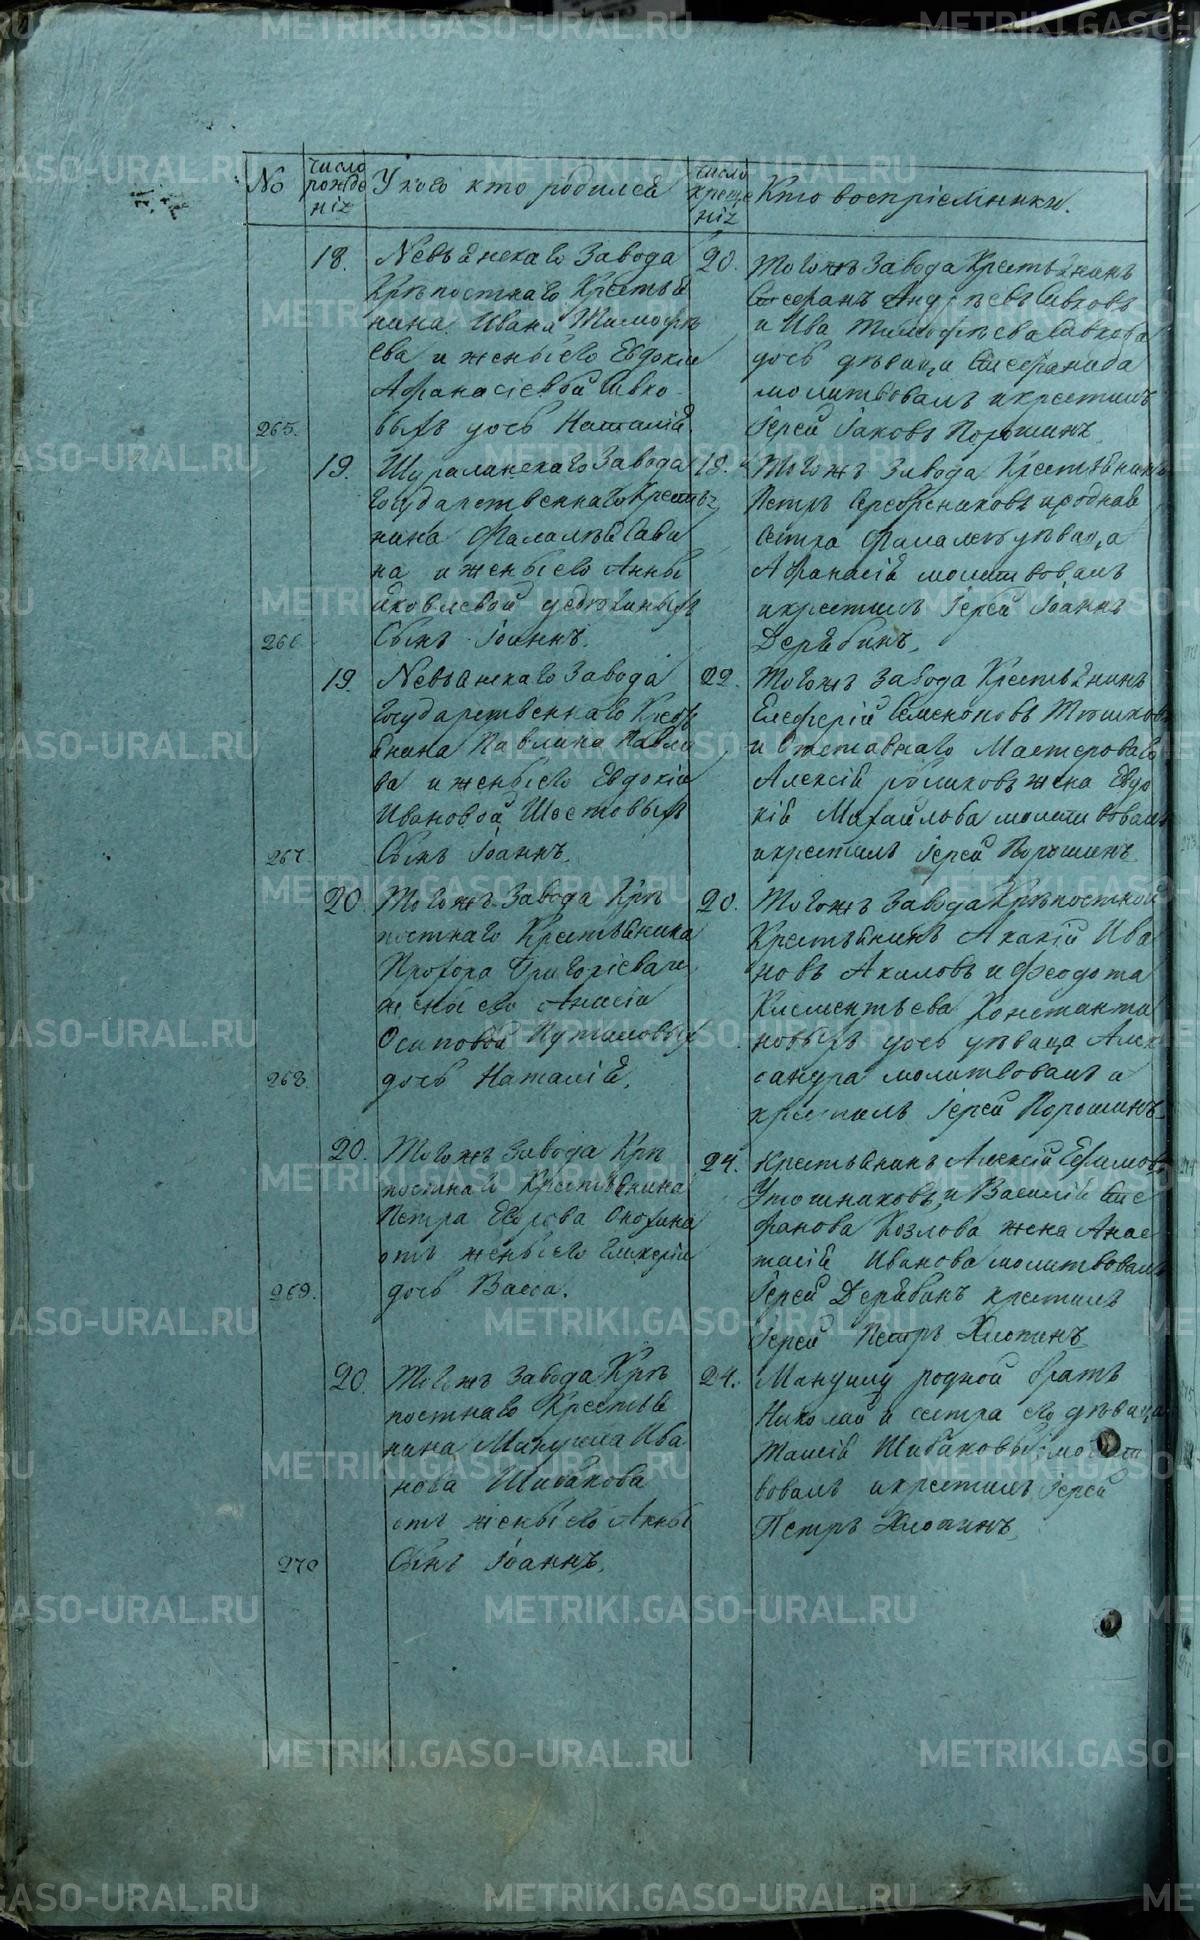 No
число рожде нія
У кого кто родился
число креще нія
Кто воспріемники.
265.
18.
Невьянскаго Завода
Крѣпостнаго Крестья
нина Ивана Тимофѣ
ева и жены его Евдокіи
Афанасіевой Сивко
выхъ дочь Наталія
20.
Того жъ Завода Крестьянинъ
Стефанъ Андрѣевъ Сивковъ
и Ива Тимофѣева Сивкова
дочь дѣвица Стефанида
молитвовалъ и крестилъ
Іерей Іаковъ Порошинъ
266
19.
Шуралинскаго Завода
Государственнаго Кресть
нина Фалалѣя Сави
на и жены его Анны
Яковлевой
Сынъ Іоаннъ.
19.
Того жъ Завода Крестьянинъ
Петръ Серебрениковъ и родная
сестра Фалалея дѣвица
Афанасія молитвовалъ
и крестилъ Іерей Іоаннъ
Дерябинъ.
267.
19.
Невьянскаго Завода
Государственнаго Кресть
янина Павлина Павло
ва и жены его Евдокіи
Ивановой Шестовыхъ
Сынъ Іоаннъ.
22.
Того жъ Завода Крестьянинъ
Елеферій Семеновъ
и Отставнаго Мастероваго
Алексія жена Евдо
кія Михайлова молитвовалъ
и крестилъ Іерей Порошинъ
268.
20
Того жъ Завода Крѣ
постнаго Крестьянина
Прохора Григоріева и
жены его Анисіи
Осиповой Путиловыхъ
дочь Наталія.
20.
Того жъ Завода Крѣпостной
Крестьянинъ Акакій Ива
новъ Акиловъ и Феодота
Клементьева Константи
новыхъ дочь дѣвица Алек
сандра молитвовалъ и
крестилъ Іерей Порошинъ
269.
20.
Того жъ Завода Крѣ
постнаго Крестьянина
Петра Егорова Охохина
отъ жены его Гликеріи
дочь Васса.
24.
Крестьянинъ Алексій Ефимовъ
Утошниковъ, и Василія Сте
фанова Козлова жена Анас
тасія Иванова молитвовалъ
Іерей Дерябинъ крестилъ
Іерей Петръ Хлопинъ
270
20.
Того жъ Завода Крѣ
постнаго Крестья
нина Мануила Ива
нова Шибакова
отъ жены его Анны
Сынъ Іоаннъ.
24.
Мануилу родной братъ
Николай и сестра его дѣвица
Таисія Шибаковы молит
вовалъ и крестилъ Іерей
Петръ Хлопинъ
METRIKI.GASO-URAL.RU